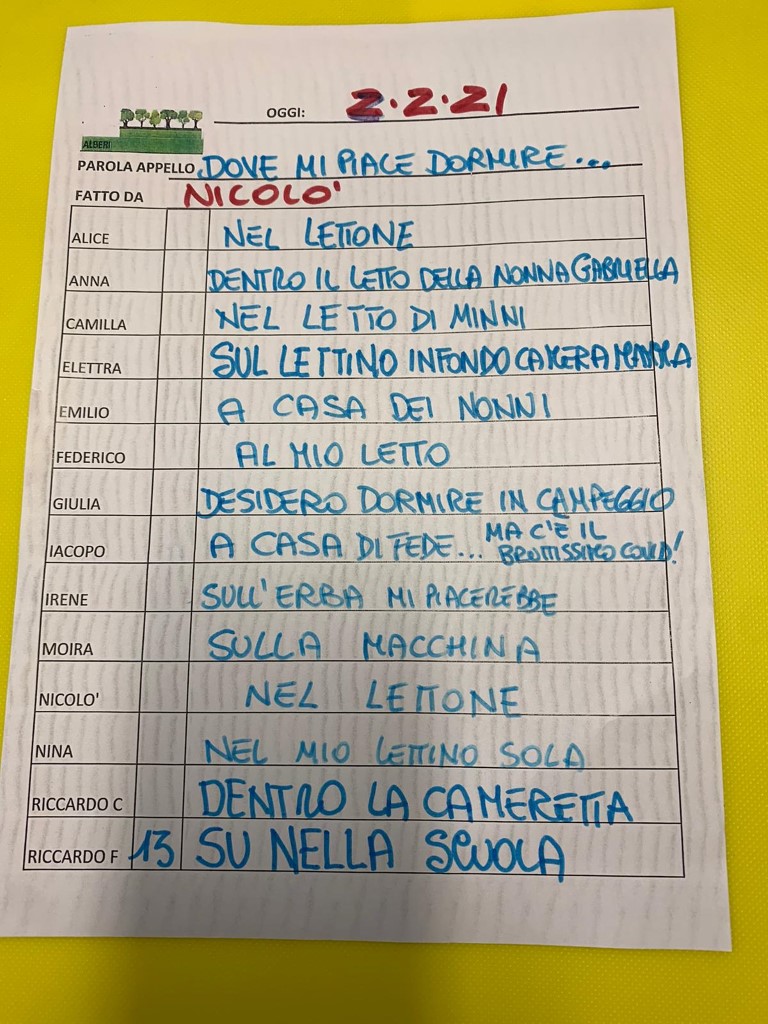 OGGI: 2.2.21
ALBERI
PAROLA APPELLO DOVE MI PIACE DORMIRE...
FATTO DA NICOLO'
ALICE NEL LETTONE
ANNA DENTRO IL LETTO DELLA NONNA GABRIELLA
CAMILLA NEL LETTO DI MINNI
ELETTRA SUL LETTINO INFONDO CAMERA MAMMA
EMILIO A CASA DEI NONNI
FEDERICO AL MIO LETTO
GIULIA DESIDERO DORMIRE IN CAMPEGGIO
IACOPO A CASA DI FEDE... MA C'È IL
BRUTTISSIMO COVID!
IRENE SULL'ERBA MI PIACEREBBE
MOIRA SULLA MACCHINA
NICOLO' NEL LETTONE
NINA NEL MIO LETTINO SOLA
RICCARDO C DENTRO LA CAMERETTA
RICCARDO F 13 SU NELLA SCUOLA